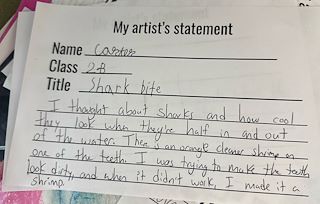 My artist's statement
Name Carter
Class 2B
Title Shark bite
I thought about sharks and how cool
they look when they're half in and out
of the water. There is an orange cleaner shrimp on
one of the teeth. I was trying to make the teeth
look dirty and when it didn't work, I made it a
shrimp.